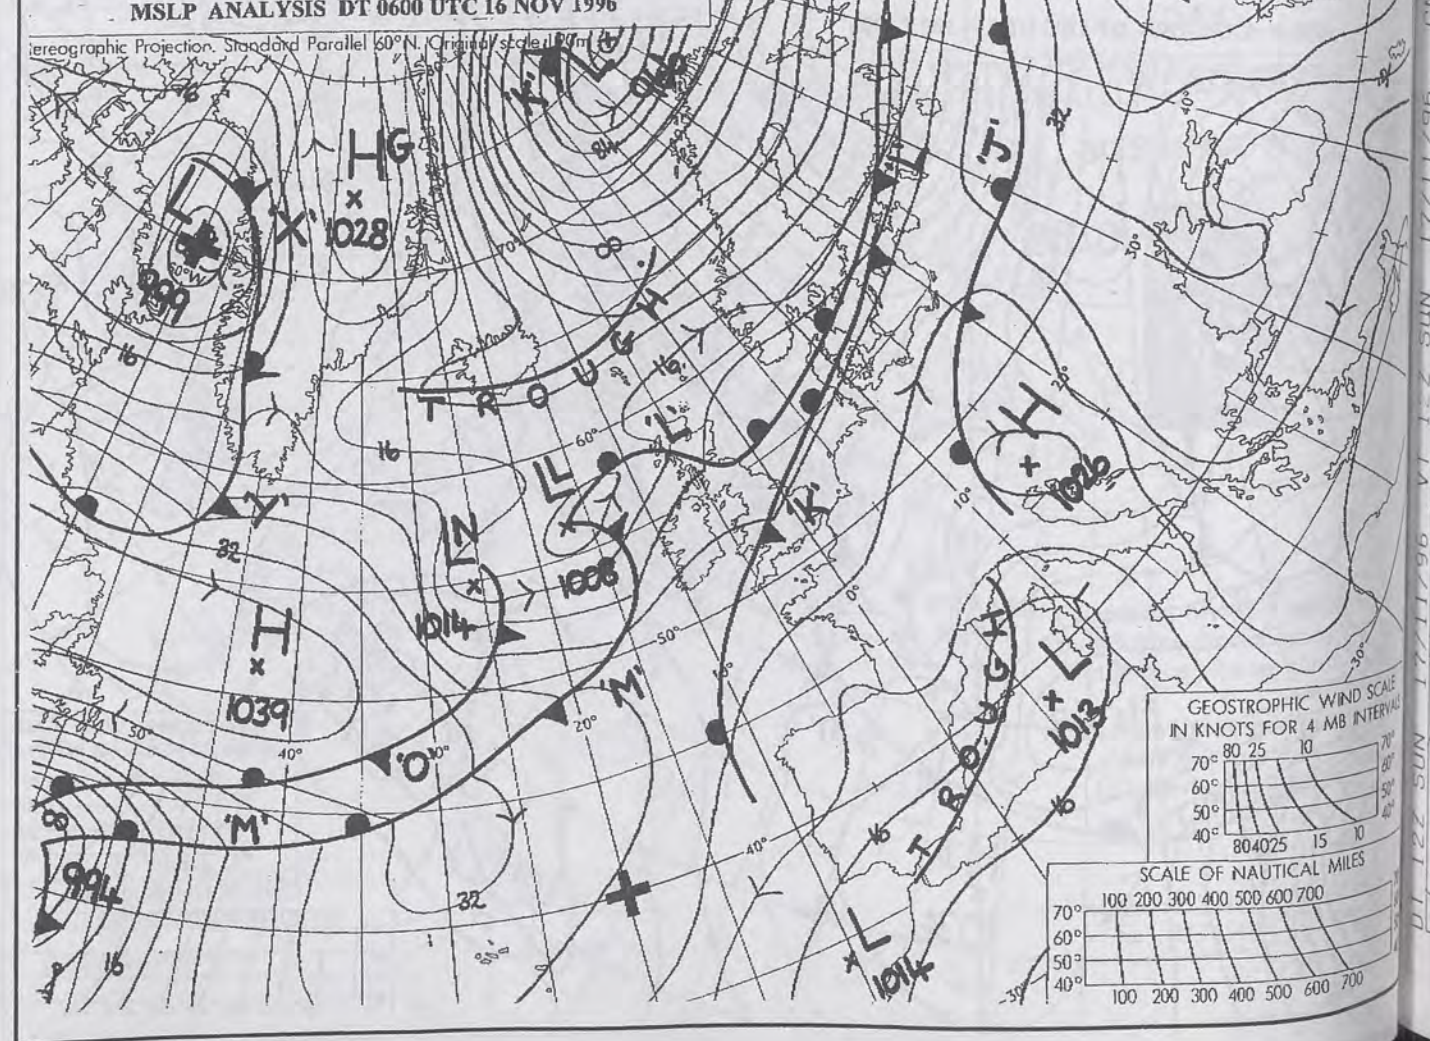 MSLP ANALYSIS DT 0600 UTC 16 NOV 1996
ereographic Projection. Standard Parallel 60°N. Original scale
'Y'
L
84
16
HG
1028
L
'X'
999
70°
8
'L'
'J'
32
40°
30°
16
TROUGH
16
16
60°
'L'
LL
1008
H
1026
20°
10°
'Y'
32
LN
1014
'K'
0°
50°
H
1039
'M'
20°
TROUGH
L
1013
50°
40°
'O'
30°
'M'
88
994
32
16
40°
16
16
L
1014
30°
30°
GEOSTROPHIC WIND SCALE
IN KNOTS FOR 4 MB INTERVALS
80 25 10
70° 70°
60° 60°
50° 50°
40° 40°
80 40 25 15 10
SCALE OF NAUTICAL MILES
100 200 300 400 500 600 700
70°
60°
50°
40°
100 200 300 400 500 600 700
DT 12Z SUN 17/11/96 VT 12Z SUN 17/11/96